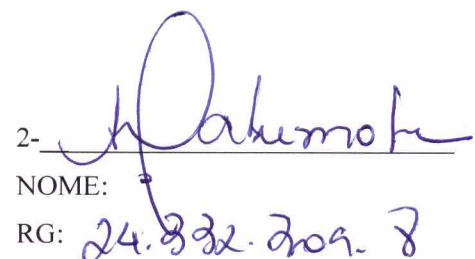 2-
NOME:
RG: 24.332.309.8